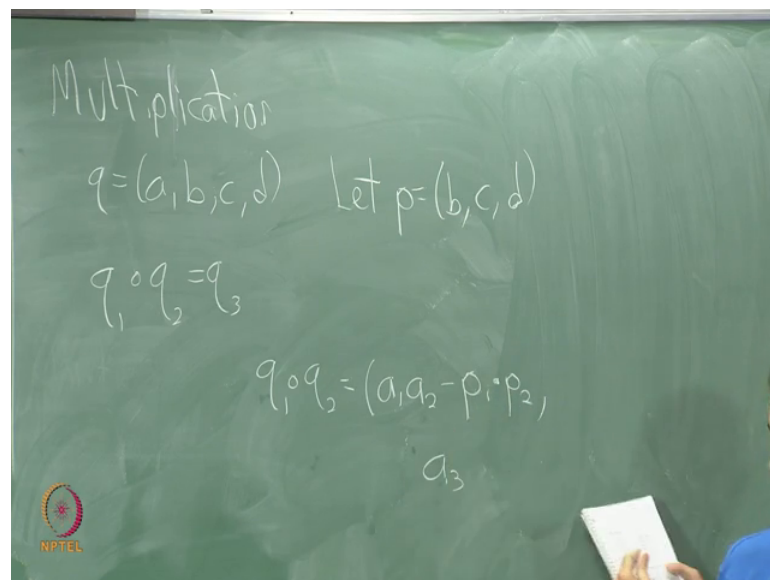 Multiplication
q=(a,b,c,d) Let p=(b,c,d)
q₁∘q₂=q₃
q₁∘q₂=(a₁a₂-p₁·p₂,
a₃
NPTEL